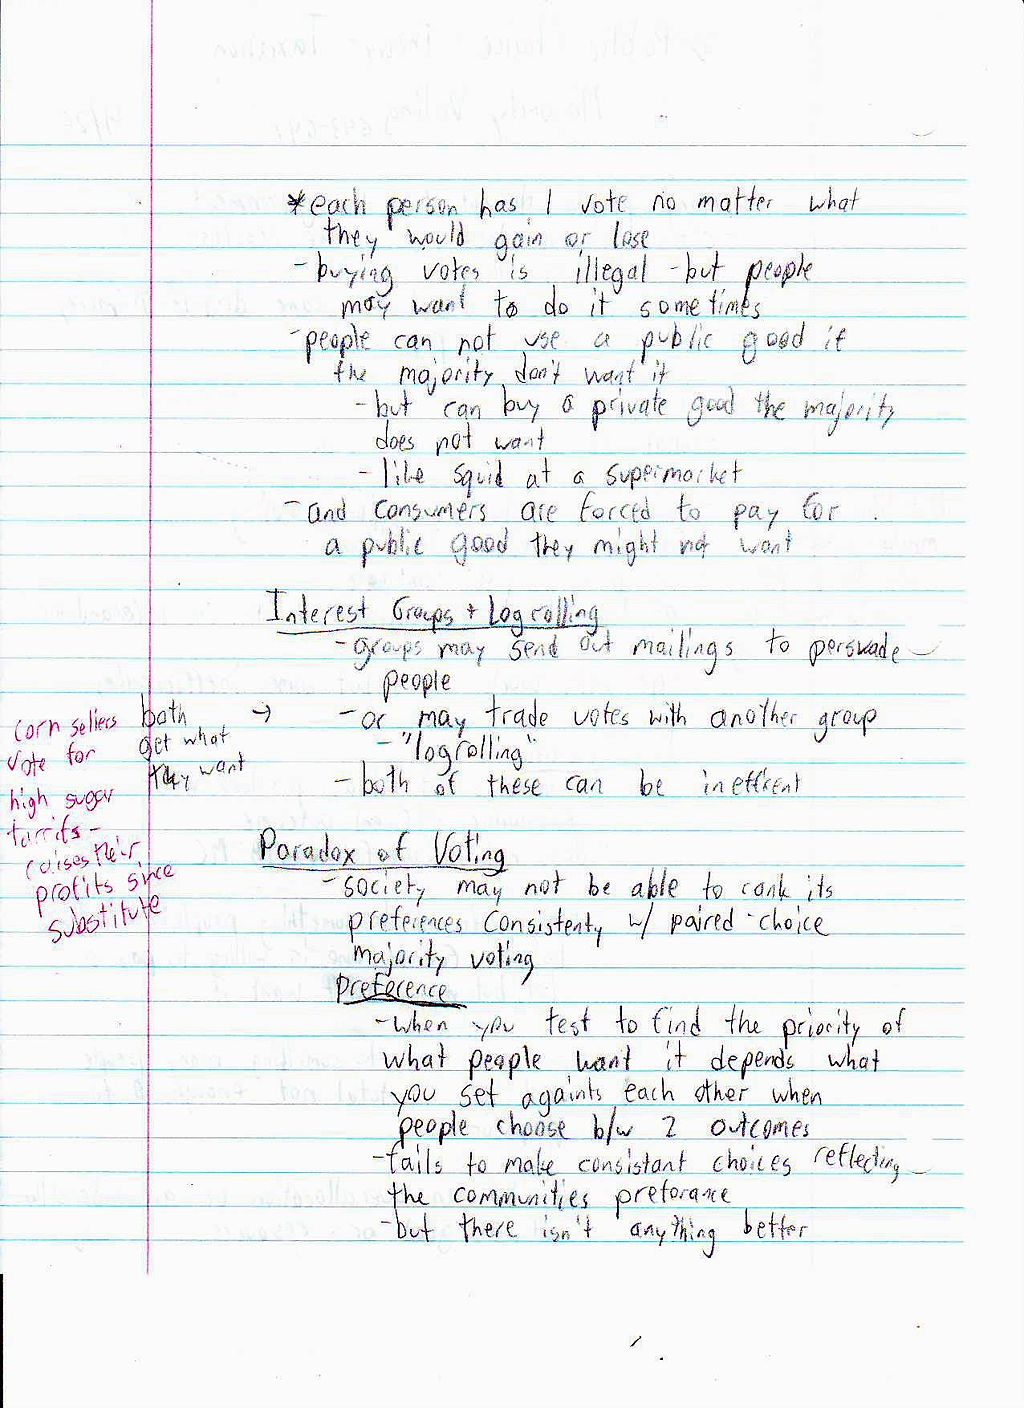 *each person has 1 vote no matter what
they would gain or lose
- buying votes is illegal - but people
may want to do it sometimes
- people can not use a public good if
the majority don't want it
- but can buy a private good the majority
does not want
- like squid at a supermarket
- and consumers are forced to pay for
a public good they might not want
Interest Groups + Logrolling
- groups may send out mailings to persuade
people
- or may trade votes with another group
- "logrolling"
- both of these can be ineffient
both →
get what
they want
corn sellers
vote for
high sugar
tarrifs -
raises their
profits since
substitute
Paradox of Voting
- society may not be able to rank its
preferences consistenty w/ paired-choice
majority voting
Preference
- when you test to find the priority of
what people want it depends what
you set againts each other when
people choose b/w 2 outcomes
- fails to make consistant choices reflecting
the communities preforance
- but there isn't anything better